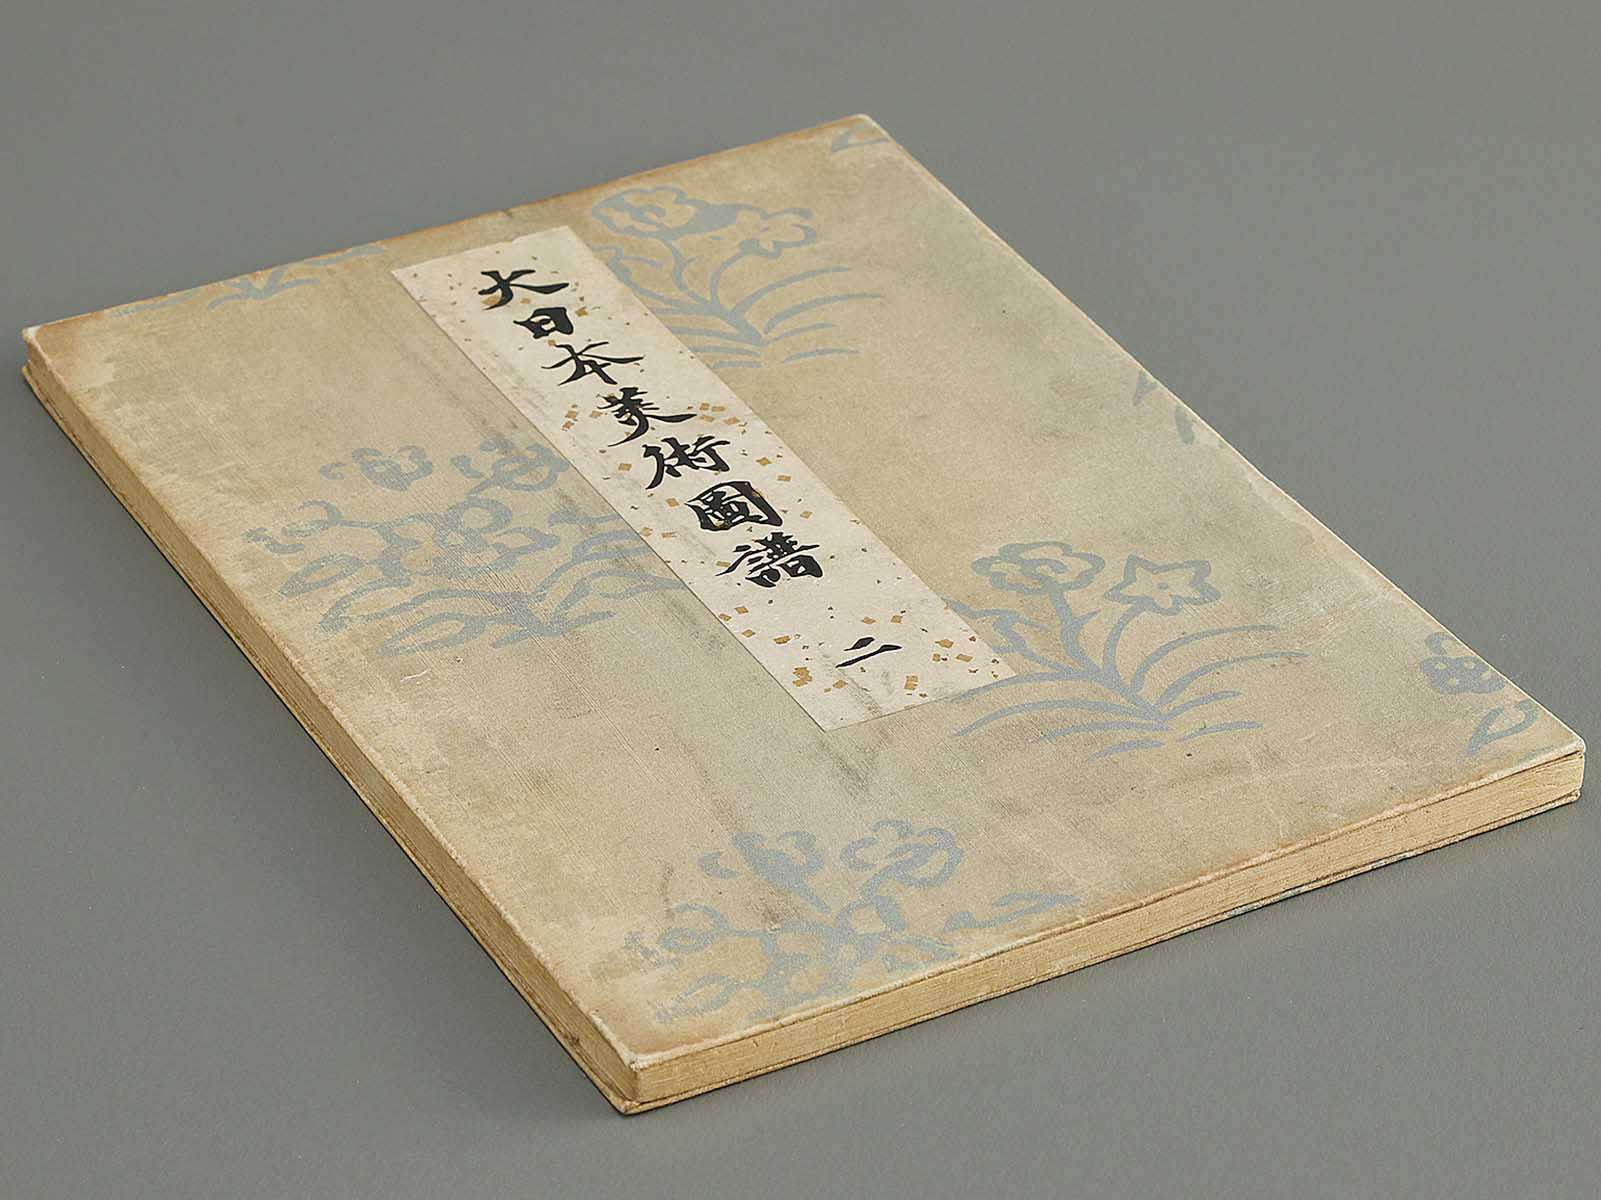 大日本美術圖譜 二